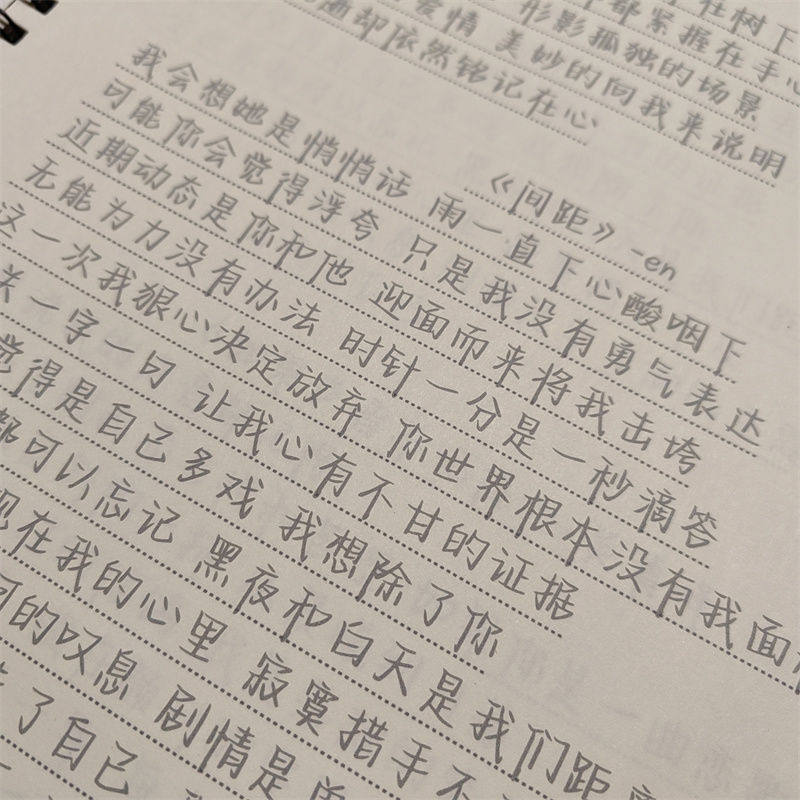 在树下
都紧握在手心
形影孤独的场景
爱情 美妙的向我来说明
却依然铭记在心
《间距》-en
我会想她是悄悄话 雨一直下心酸咽下
可能你会觉得浮夸 只是我没有勇气表达
近期动态是你和他 迎面而来将我击垮
无能为力没有办法 时针一分是一秒滴答
这一次我狠心决定放弃 你世界根本没有我面
关一字一句 让我心有不甘的证据
觉得是自己多戏 我想除了你
都可以忘记 黑夜和白天是我们距
现在我的心里 寂寞措手不
的叹息 剧情是
了自己